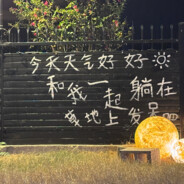 今天天气好好
和我一起躺在
草地上发呆